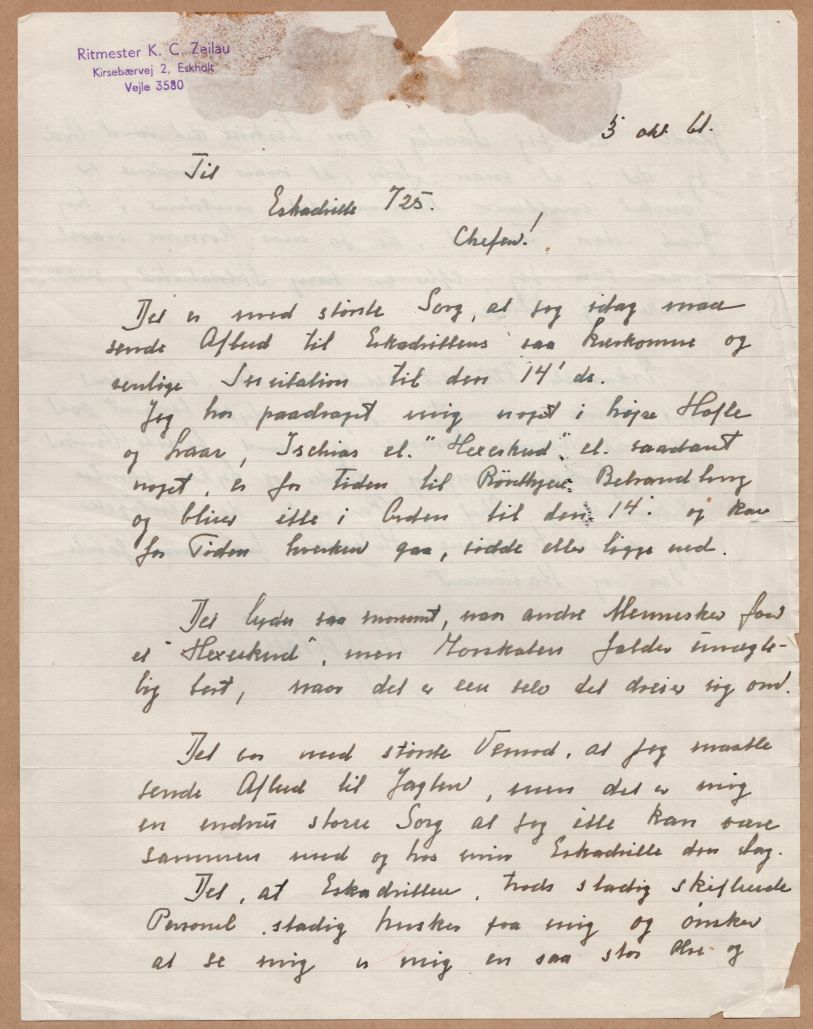 Ritmester K. C. Zeilau
Kirsebærvej 2, Eskholt
Vejle 3580
5 okt 61.
Til
Eskadrille 725.
Chefen!
Det er med største Sorg, at jeg idag maa
sende Afbud til Eskadrillens saa kærkomne og
venlige Invitation til den 14' ds.
Jeg har paadraget mig noget i højre Hofte
og Laar, Ischias el. "Hexeskud" el. saadant
noget, er for Tiden til Behandling
og bliver ikke i Orden til den 14'. og kan
for Tiden hverken gaa, sidde eller ligge ned.
Det lyder saa morsomt, naar andre Mennesker faar
et "Hexeskud", men Morskaben falder unægte-
lig bort, naar det er een selv det drejer sig om.
Det var med største Vemod, at jeg maatte
sende Afbud til Jagten, men det er mig
en endnu større Sorg at jeg ikke kan være
sammen med og hos min Eskadrille den Dag.
Det, at Eskadrillen, trods stadig skiftende
Personel, stadig husker paa mig og ønsker
at se mig er mig en saa stor Ære og